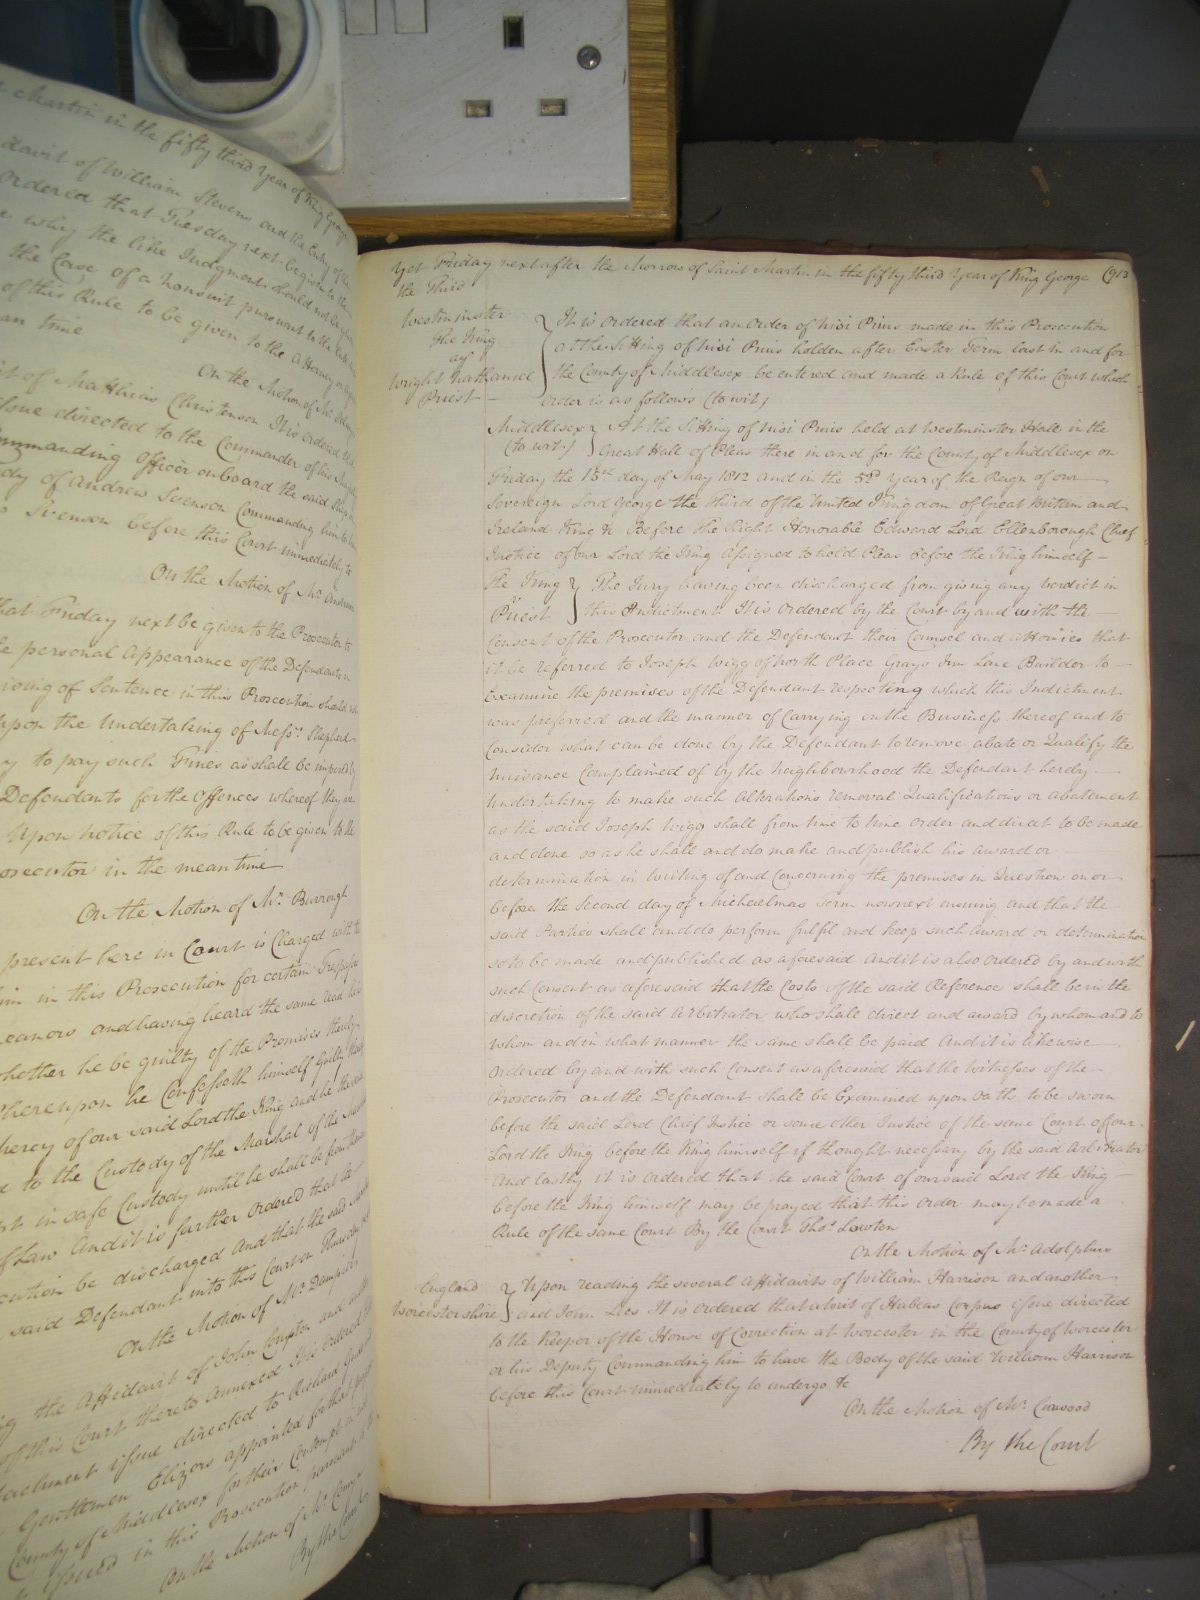 t Martin in the fifty third Year of King George
davit of William Stevens and the Entry of the
Ordered that Tuesday next be given to the
why the like Judgment should not be given
the Case of a Nonsuit pursuant to the
of this Rule to be given to the Attorney or Agent
an time
On the Motion of Mr.
it of Mathias Christenson It is ordered that
issue directed to the Commander of his Majestys
Commanding Officer on board the said Ship
dy of Andrew Svenson Commanding him to have
Svenson before this Court immediately to
On the Motion of Mr. Andrews
hat Friday next be given to the Prosecutor to
e personal Appearance of the Defendants in
iving of Sentence in this Prosecution should not
upon the Undertaking of Messrs. Shepherd
y to pay such Fines as shall be imposed by
Defendants for the Offences whereof they are
Upon notice of this Rule to be given to the
osecutor in the mean time
On the Motion of Mr. Burrough
present here in Court is Charged with the
him in this Prosecution for certain Trespasses
eanors and having heard the same read
hether he be guilty of the Premises thereby
hereupon he Confesseth himself Guilty thereof
hercy of our said Lord the King and he
d to the Custody of the Marshal of the Marshalsea
pt in safe Custody until he shall be from thence
of Law And it is further Ordered that the
cution be discharged And that the said
said Defendant into this Court on Thursday
On the Motion of Mr. Dampier
g the Affidavit of John Compton and
of this Court thereto Annexed It is Ordered
tachment issue directed to Richard
Gentlemen Elizors appointed for that purpose
County of Middlesex for their Contempt in
issued in this Prosecution pursuant
On the Motion of Mr.
By the Court
Yet Friday next after the Morrow of Saint Martin in the fifty third Year of King George 913
the Third
Westminster
The King
agt
Wright Nathaniel
Priest
It is Ordered that an Order of Nisi Prius made in this Prosecution
at the Sitting of Nisi Prius holden after Easter Term last in and for
the County of Middlesex be entered and made a Rule of this Court which
Order is as follows (to wit)
Middlesex (to wit) At the Sitting of Nisi Prius held at Westminster Hall in the
Great Hall of Pleas there in and for the County of Middlesex on
Friday the 15th day of May 1812 and in the 52d Year of the Reign of our
Sovereign Lord George the Third of the United Kingdom of Great Britain and
Ireland King &c Before the Right Honorable Edward Lord Ellenborough Chief
Justice of our Lord the King Assigned to hold Pleas before the King himself
The King v Priest The Jury having been discharged from giving any Verdict in
this Indictment It is Ordered by the Court by and with the
Consent of the Prosecutor and the Defendant their Counsel and Attornies that
it be referred to Joseph Wigg of North Place Grays Inn Lane Builder to
Examine the premises of the Defendant respecting which this Indictment
was preferred and the manner of Carrying on the Business thereof and to
Consider what can be done by the Defendant to remove abate or Qualify the
Nuisance Complained of by the Neighbourhood the Defendant hereby
Undertaking to make such Alterations removal Qualifications or abatement
as the said Joseph Wigg shall from time to time order and direct to be made
and done so as he shall and do make and publish his award or
determination in Writing of and Concerning the premises in Question on or
before the Second day of Michaelmas Term now next ensuing and that the
said Parties shall and do perform fulfil and keep such Award or determination
so to be made and published as aforesaid And it is also ordered by and with
such Consent as aforesaid that the Costs of the said Reference shall be in the
discretion of the said Arbitrator who shall direct and award by whom and to
whom and in what manner the same shall be paid And it is likewise
Ordered by and with such Consent as aforesaid that the Witnesses of the
Prosecutor and the Defendant shall be Examined upon Oath to be sworn
before the said Lord Chief Justice or some other Justice of the same Court of our
Lord the King before the King himself if thought necessary by the said Arbitrator
And lastly it is Ordered that the said Court of our said Lord the King
before the King himself may be prayed that this Order may be made a
Rule of the same Court By the Court Thos. Lowten
On the Motion of Mr. Adolphus
England
Worcestershire
Upon reading the several Affidavits of William Harrison and another
and John Lees It is Ordered that a Writ of Habeas Corpus issue directed
to the Keeper of the House of Correction at Worcester in the County of Worcester
or his Deputy Commanding him to have the Body of the said William Harrison
before this Court immediately to undergo &c
On the Motion of Mr. Curwood
By the Court